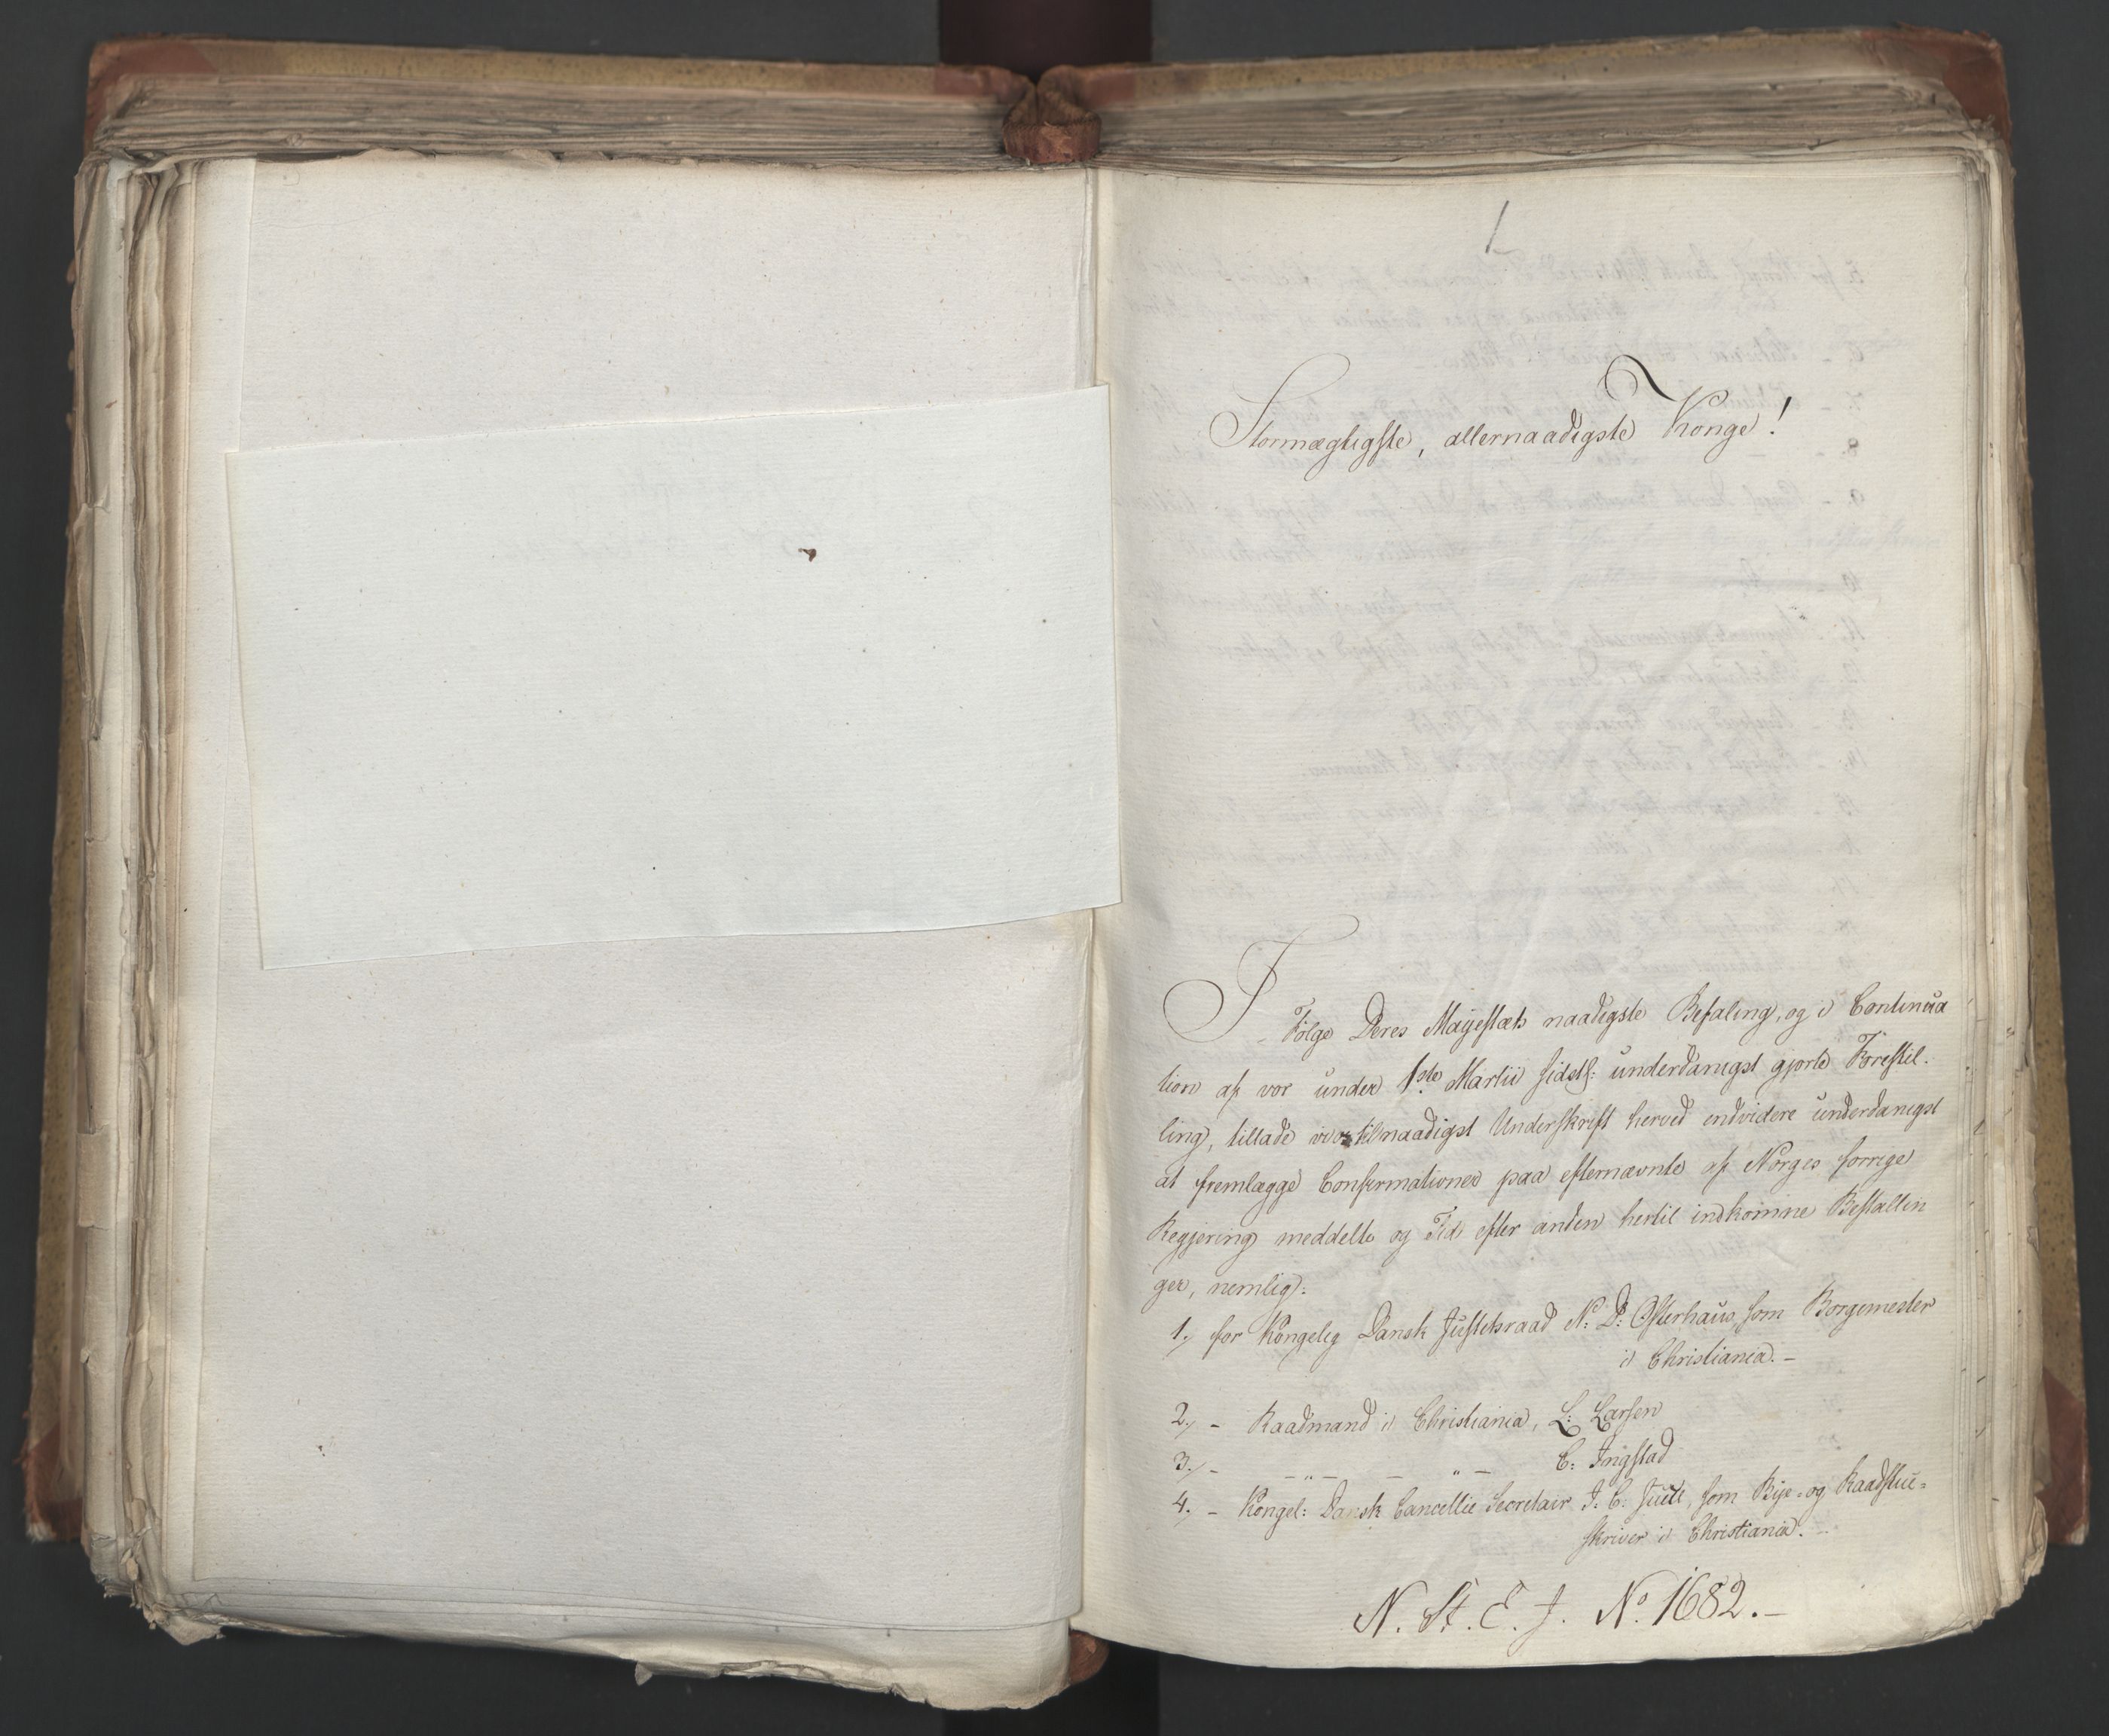 1
Stormægtigste, allernaadigste Konge!
I Følge Deres Majestæts naadigste Befaling, og i Continua
tion af vor under 1ste Martii sidstl: underdanigst gjorte Forestil-
ling, tillade vi os til naadigst Underskrift herved endvidere underdanigst
at fremlægge Confirmationer paa efternævnte af Norges forrige
Regjering meddelte og Tid efter anden hertil indkomne Bestallin
ger, nemlig:
1, for Kongelig Dansk Justitsraad N: D: Osterhaus, som Borgemester
i Christiania. –
2, – Raadmand i Christiania, L: Larsen
3, – – " – – " – C: Ingstad
4, – Kongel: Dansk Cancellie Secretair J: C: Juell, som Bye- og Raadstue-
skriver i Christiania. –
N. St. E. J. No 1682. –